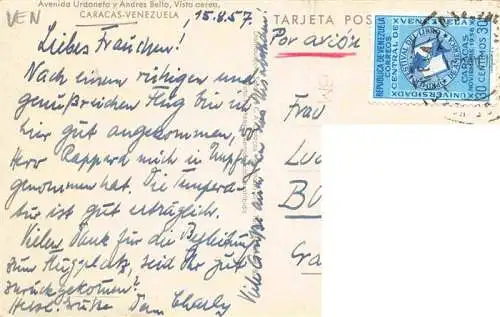 VEN
Avenida Urdaneta y Andres Bello, Vista aerea,
CARACAS-VENEZUELA
15.8.57.
TARJETA POS
Por avión
Liebes Frauchen!
Nach einem ruhigen und
genußreichen Flug bin ich
hier gut angekommen, wo
Herr Rapperd mich in Empfang
genommen hat. Die Tempera-
tur ist gut erträglich.
Vielen Dank für die Begleitung
zum Flugplatz, seid Ihr gut
zurückgekommen?
Herzl. Grüße Dein Charly
Viele Grüße auch an
Frau
REPUBLICA DE VENEZUELA
CORREOS
UNIVERSIDAD
CENTRAL DE
VENEZUELA
30 CENTIMOS 30